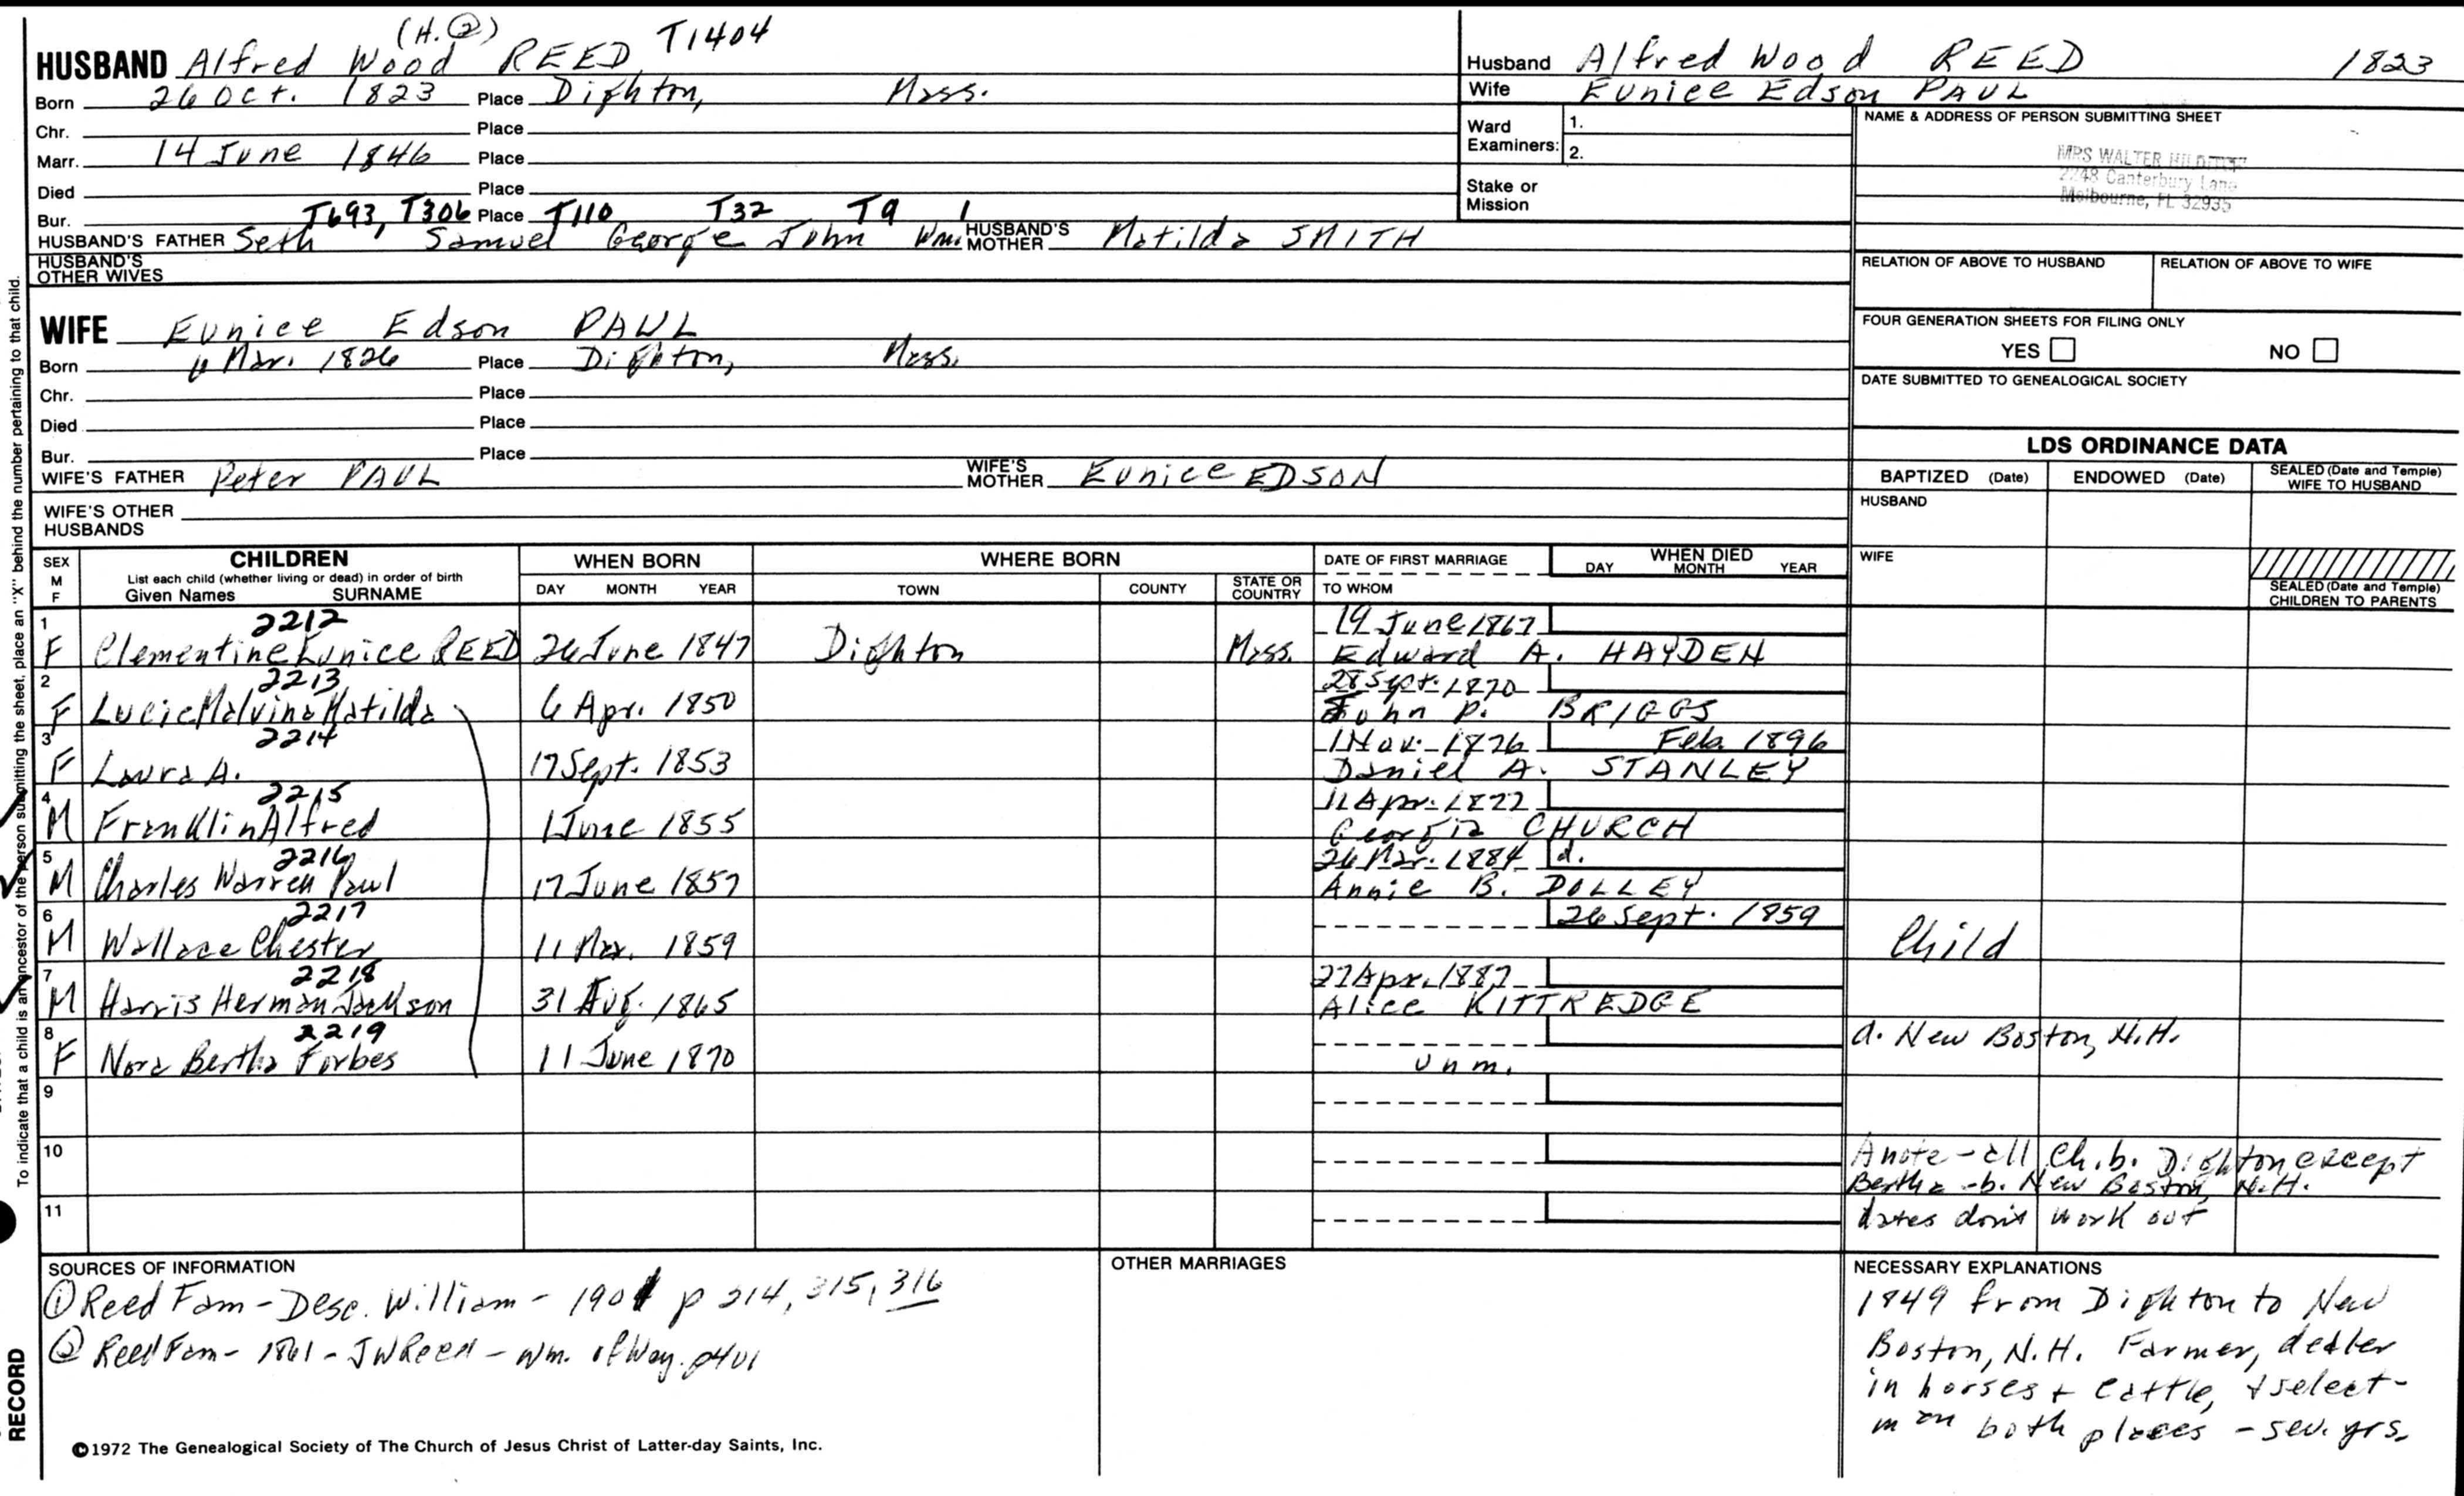 (H.②)
HUSBAND Alfred Wood REED T1404
Born 26 Oct. 1823 Place Dighton, Mass.
Chr. Place
Marr. 14 June 1846 Place
Died Place
Bur. T693, T306 Place T110 T32 T9 1
HUSBAND'S FATHER Seth Samuel George John Wm. HUSBAND'S MOTHER Matilda SMITH
HUSBAND'S OTHER WIVES
WIFE Eunice Edson PAUL
Born Mar. 1826 Place Dighton, Mass.
Chr. Place
Died Place
Bur. Place
WIFE'S FATHER Peter PAUL WIFE'S MOTHER Eunice EDSON
WIFE'S OTHER HUSBANDS
Husband Alfred Wood REED 1823
Wife Eunice Edson PAUL
Ward Examiners: 1.
2.
Stake or Mission
NAME & ADDRESS OF PERSON SUBMITTING SHEET
MRS WALTER
2248 Canterbury Lane
Melbourne, FL 32935
RELATION OF ABOVE TO HUSBAND RELATION OF ABOVE TO WIFE
FOUR GENERATION SHEETS FOR FILING ONLY
YES NO
DATE SUBMITTED TO GENEALOGICAL SOCIETY
LDS ORDINANCE DATA
BAPTIZED (Date) ENDOWED (Date) SEALED (Date and Temple) WIFE TO HUSBAND
HUSBAND
WIFE
SEALED (Date and Temple) CHILDREN TO PARENTS
SEX M F CHILDREN WHEN BORN WHERE BORN DATE OF FIRST MARRIAGE WHEN DIED
List each child (whether living or dead) in order of birth
Given Names SURNAME DAY MONTH YEAR TOWN COUNTY STATE OR COUNTRY TO WHOM DAY MONTH YEAR
1 2212 19 June 1867
F Clementine Eunice REED 26 June 1847 Dighton Mass. Edward A. HAYDEN
2 2213 28 Sept. 1870
F Lucie Malvina Matilda 6 Apr. 1850 John P. BRIGGS
3 2214 1 Nov. 1876 Feb. 1896
F Laura A. 17 Sept. 1853 Daniel A. STANLEY
4 2215 11 Apr. 1877
M Franklin Alfred 1 June 1855 Georgia CHURCH
5 2216 26 Mar. 1884 d.
M Charles Warren Paul 17 June 1857 Annie B. DOLLEY
6 2217 26 Sept. 1859
M Wallace Chester 11 Mar. 1859 Child
7 2218 27 Apr. 1887
M Harris Herman Jackson 31 Aug. 1865 Alice KITTREDGE
8 2219 d. New Boston, N.H.
F Nora Bertha Forbes 11 June 1870 unm.
9
10 A note - all Ch. b. Dighton except
Bertha - b. New Boston, N.H.
11 dates don't work out
SOURCES OF INFORMATION
① Reed Fam - Desc. William - 1901 p 314, 315, 316
② Reed Fam - 1861 - JW Reed - Wm. of Wey. p401
©1972 The Genealogical Society of The Church of Jesus Christ of Latter-day Saints, Inc.
OTHER MARRIAGES
NECESSARY EXPLANATIONS
1849 from Dighton to New
Boston, N.H. Farmer, dealer
in horses + cattle, + select-
man both places - sev. yrs.
To indicate that a child is an ancestor of the person submitting the sheet, place an "X" behind the number pertaining to that child.
RECORD